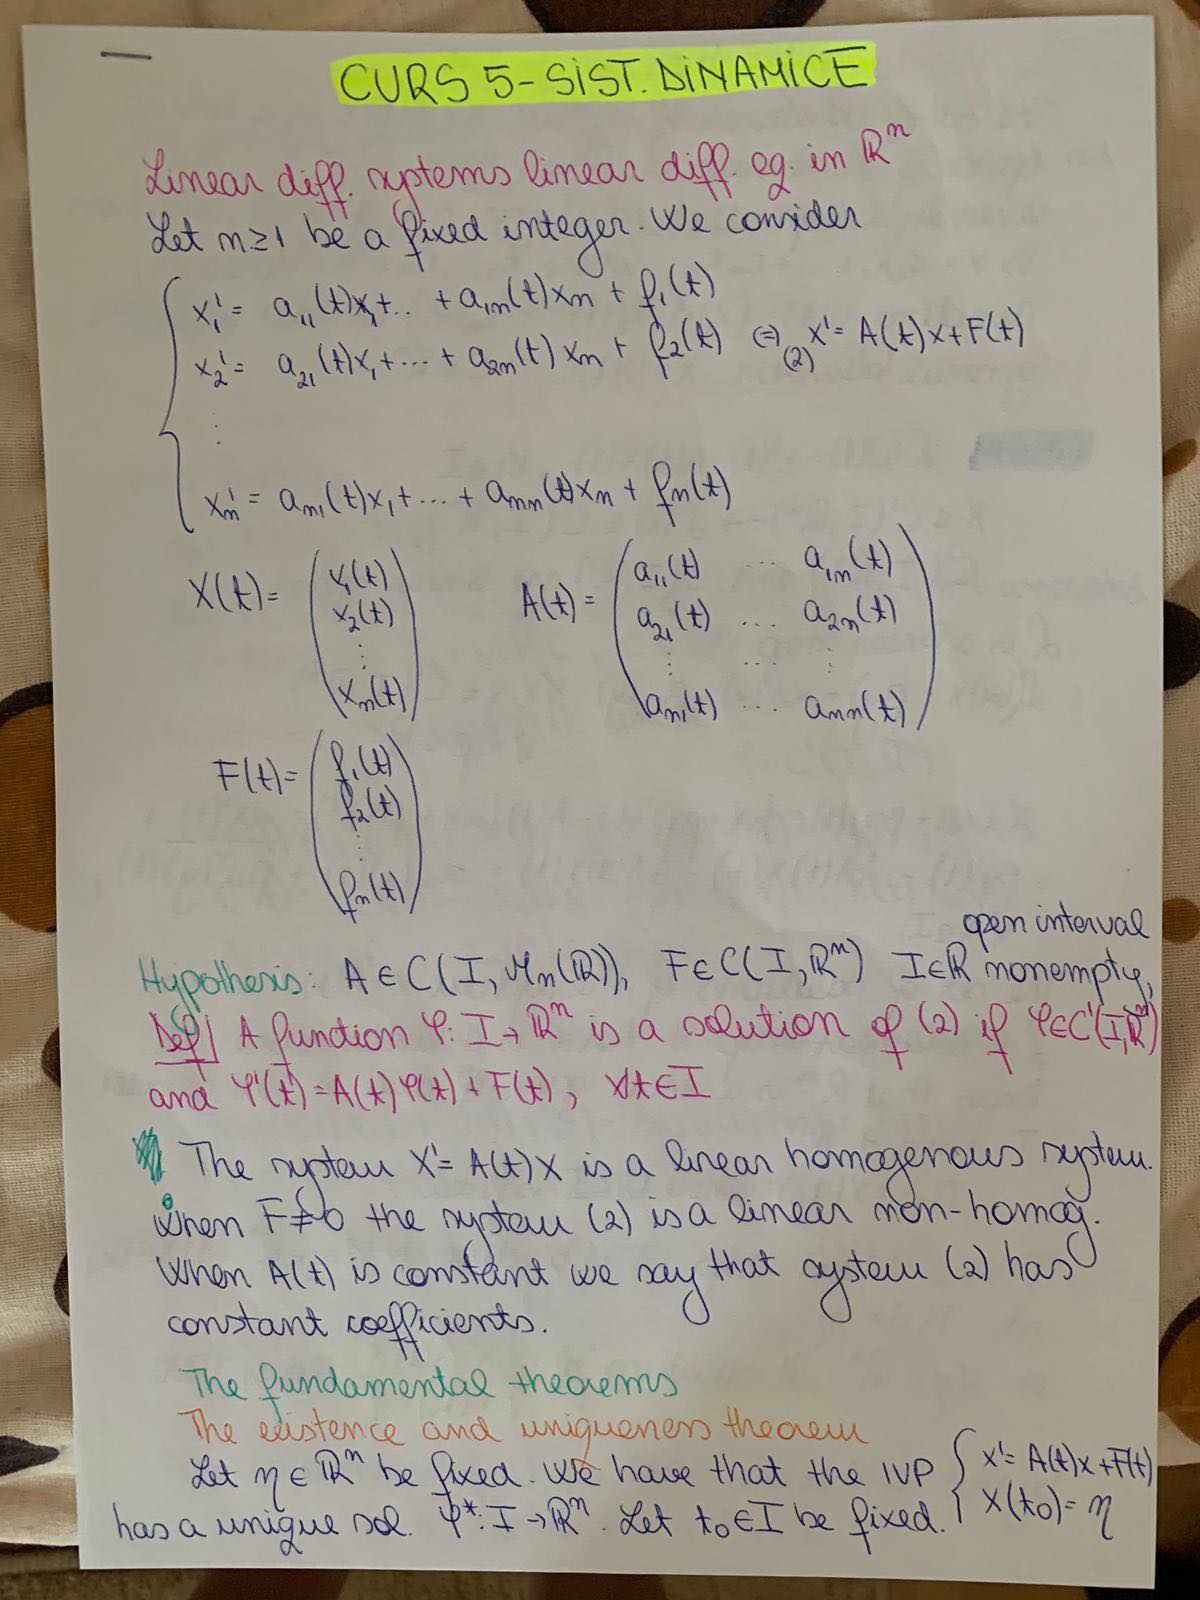 CURS 5 - SIST. DINAMICE
Linear diff. systems linear diff. eg. in ℝⁿ
Let n≥1 be a fixed integer. We consider
x₁' = a₁₁(t)x₁+.. +a₁ₙ(t)xₙ + f₁(t)
x₂' = a₂₁(t)x₁+... + a₂ₙ(t)xₙ + f₂(t) ⇔ (2) X' = A(t)x+F(t)
⋮
xₙ' = aₙ₁(t)x₁+... + aₙₙ(t)xₙ + fₙ(t)
X(t) = (x₁(t) x₂(t) ⋮ xₙ(t)) A(t) = (a₁₁(t) ... a₁ₙ(t) a₂₁(t) ... a₂ₙ(t) ⋮ ... ⋮ aₙ₁(t) ... aₙₙ(t))
F(t) = (f₁(t) f₂(t) ⋮ fₙ(t))
open interval
Hypothesis: A∈C(I, Mₙ(ℝ)), F∈C(I,ℝⁿ) I∈ℝ nonempty,
Def| A function φ: I→ℝⁿ is a solution of (2) if φ∈C¹(I,ℝⁿ)
and φ'(t)=A(t)φ(t)+F(t), ∀t∈I
The system X'= A(t)X is a linear homogenous system.
When F≢0 the system (2) is a linear non-homog.
When A(t) is constant we say that system (2) has
constant coefficients.
The fundamental theorems
The existence and uniqueness theorem
Let η∈ℝⁿ be fixed. We have that the IVP { X'= A(t)x+F(t)
has a unique sol. φ*: I→ℝⁿ. Let t₀∈I be fixed. X(t₀)= η